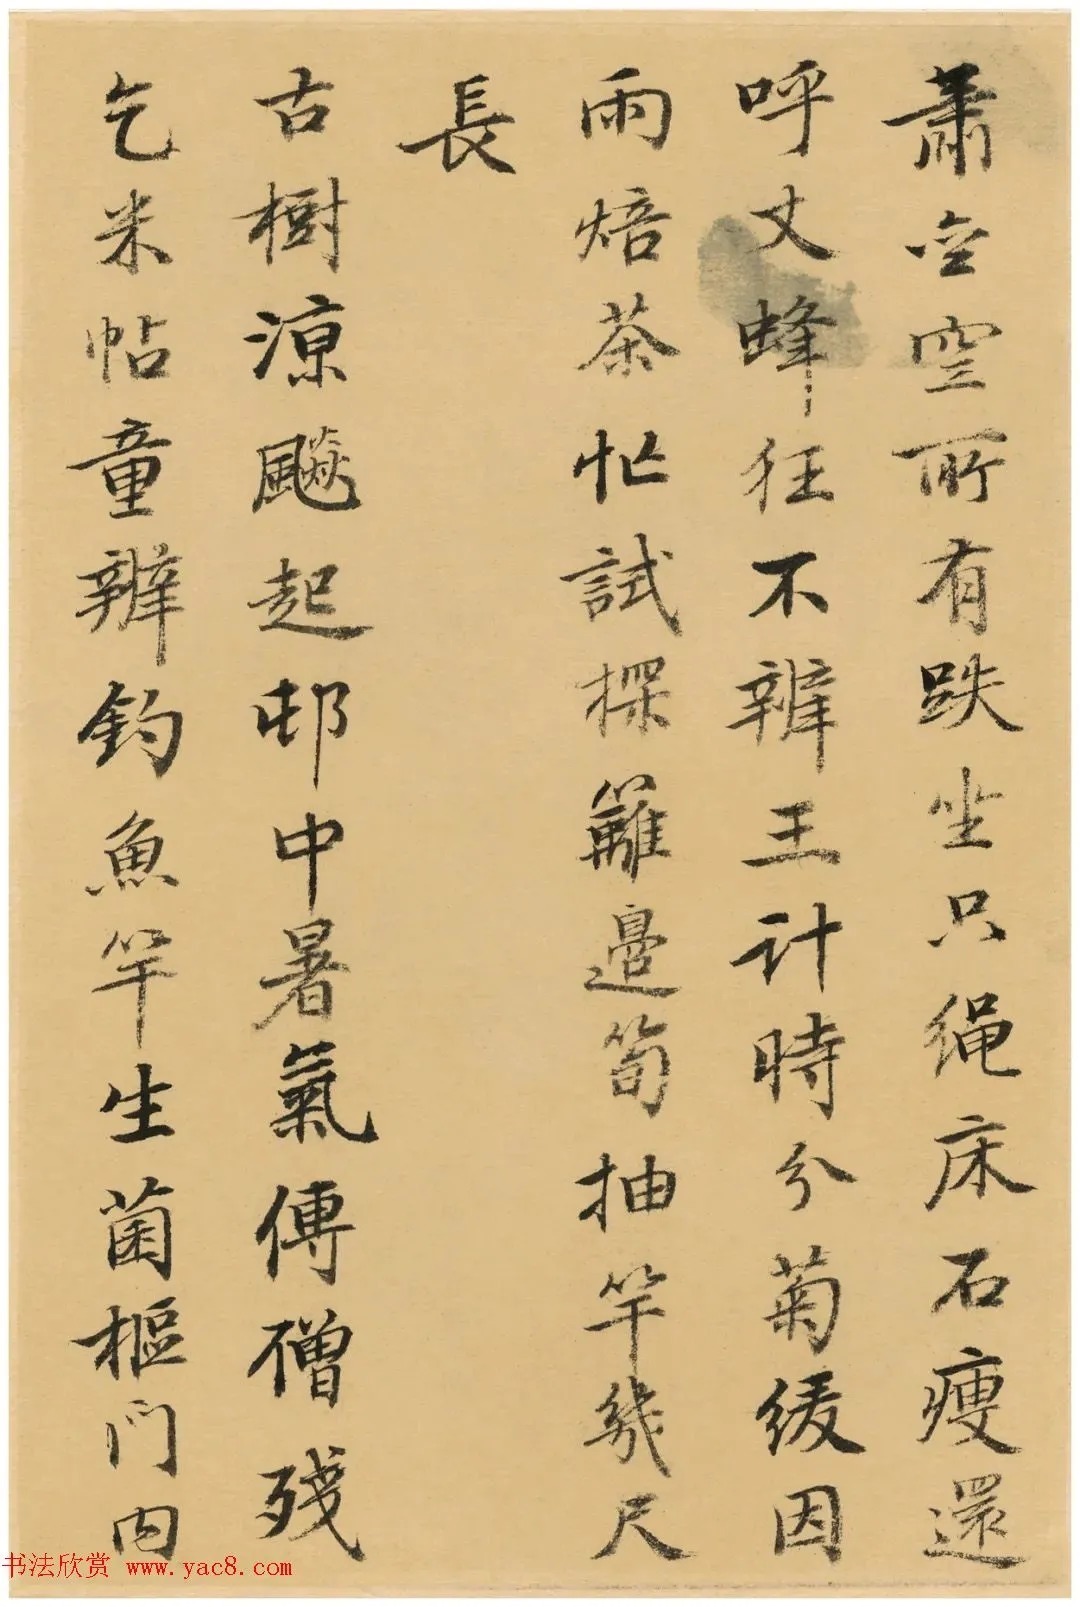 蕭室空所有跌坐只繩床石瘦還
呼丈蜂狂不辨王計時分菊緩因
雨焙茶忙試探籬邊筍抽竿幾尺
長
古樹涼飇起邨中暑氣傳僧殘
乞米帖童辨釣魚竿生菌樞門內
书法欣赏 www.yac8.com